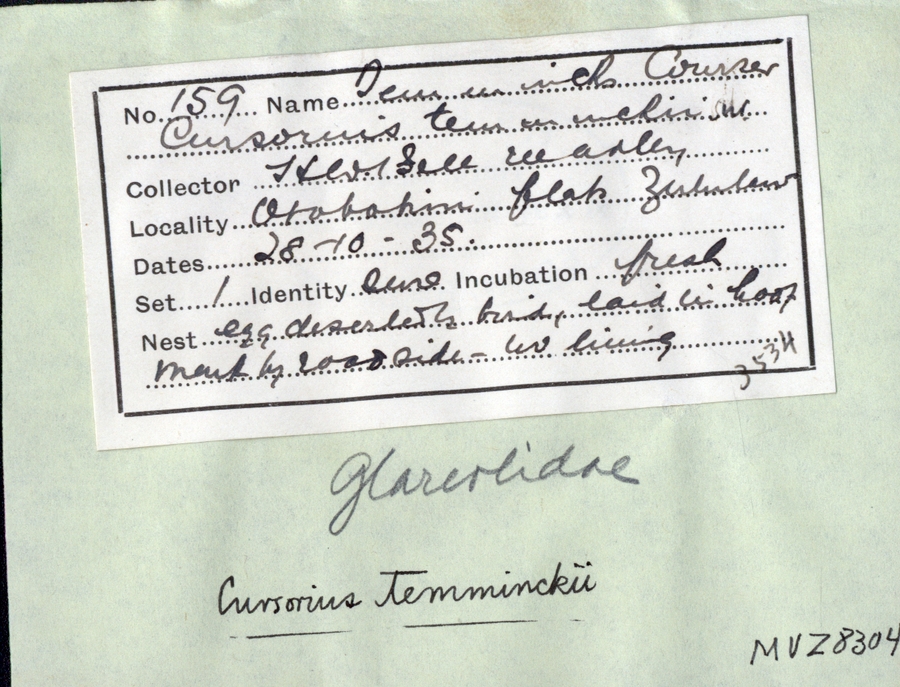 No. 159 Name Temmincks Courser
Cursorius temminckii
Collector H.W. Bell Marley
Locality Otobotini flats Zululand
Dates 28-10-35.
Set 1 Identity sure Incubation fresh
Nest egg deserted by bird, laid in hoof
mark by road side - no lining
3534
Glareolidae
Cursorius temminckii
MVZ8304